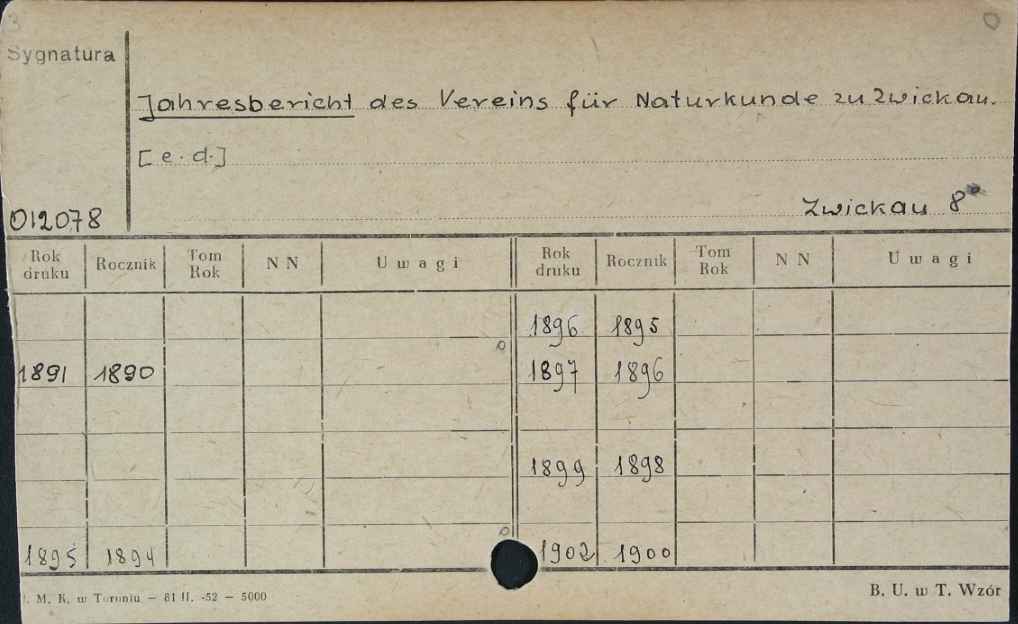 Sygnatura
Jahresbericht des Vereins für Naturkunde zu Zwickau.
[e.d.]
Zwickau 8°
012078
Rok druku Rocznik Tom Rok N N Uwagi Rok druku Rocznik Tom Rok N N Uwagi
1896 1895
1891 1890 1897 1896
1899 1898
1895 1894 1902 1900
M. K. w Toruniu — 81 II. -52 — 5000
B. U. w T. Wzór